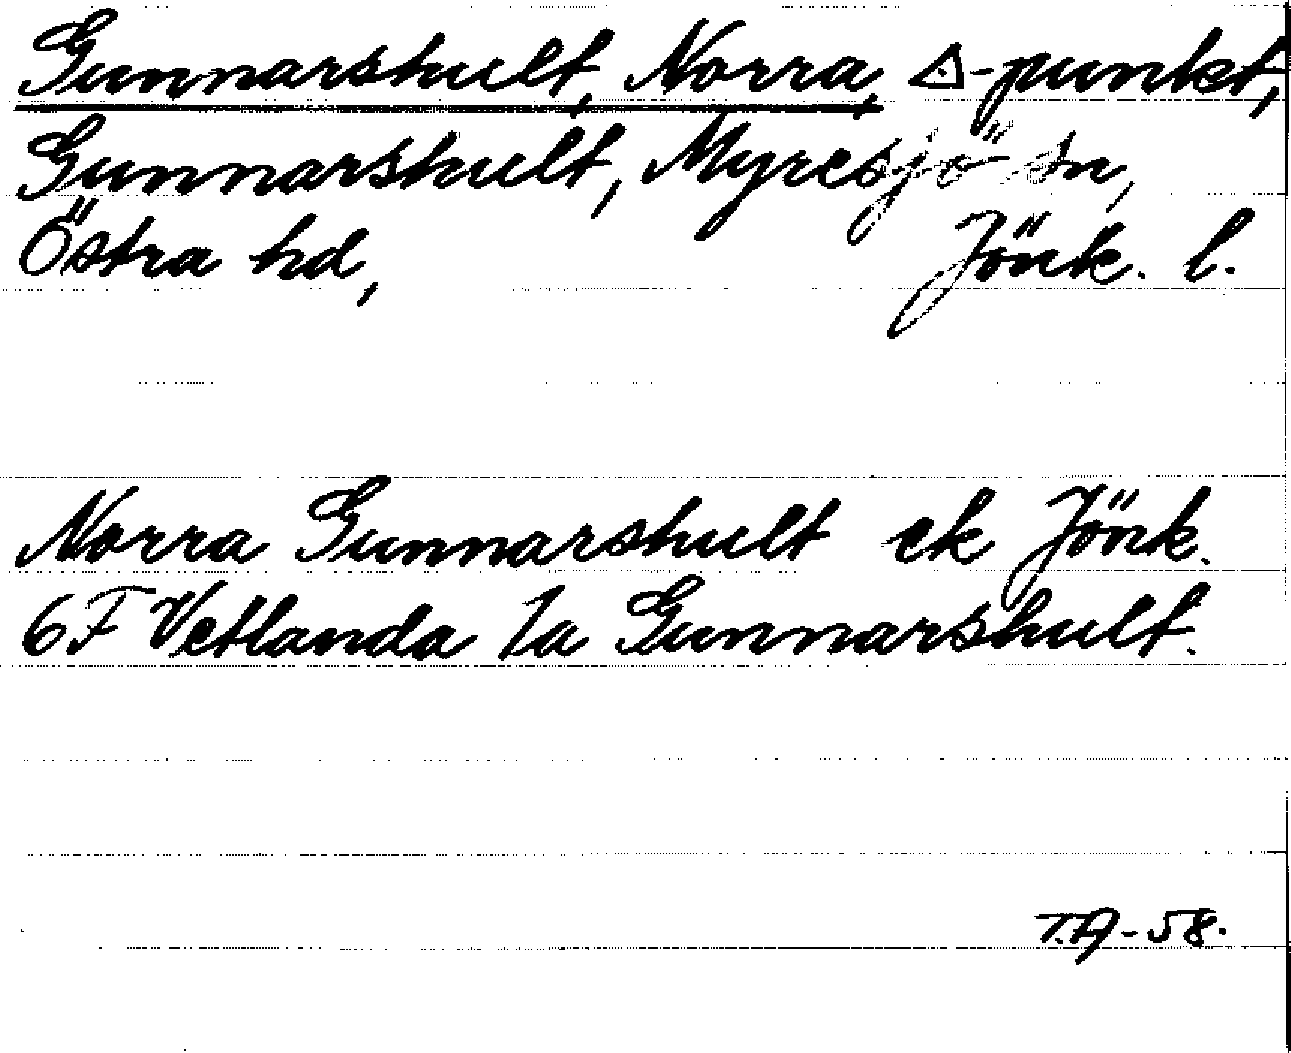 Gunnarshult, Norra, △-punkt,
Gunnarshult, Myresjö sn,
Östra hd, Jönk. l.
Norra Gunnarshult ek Jönk.
6F Vetlanda 1a Gunnarshult.
T.A-58.